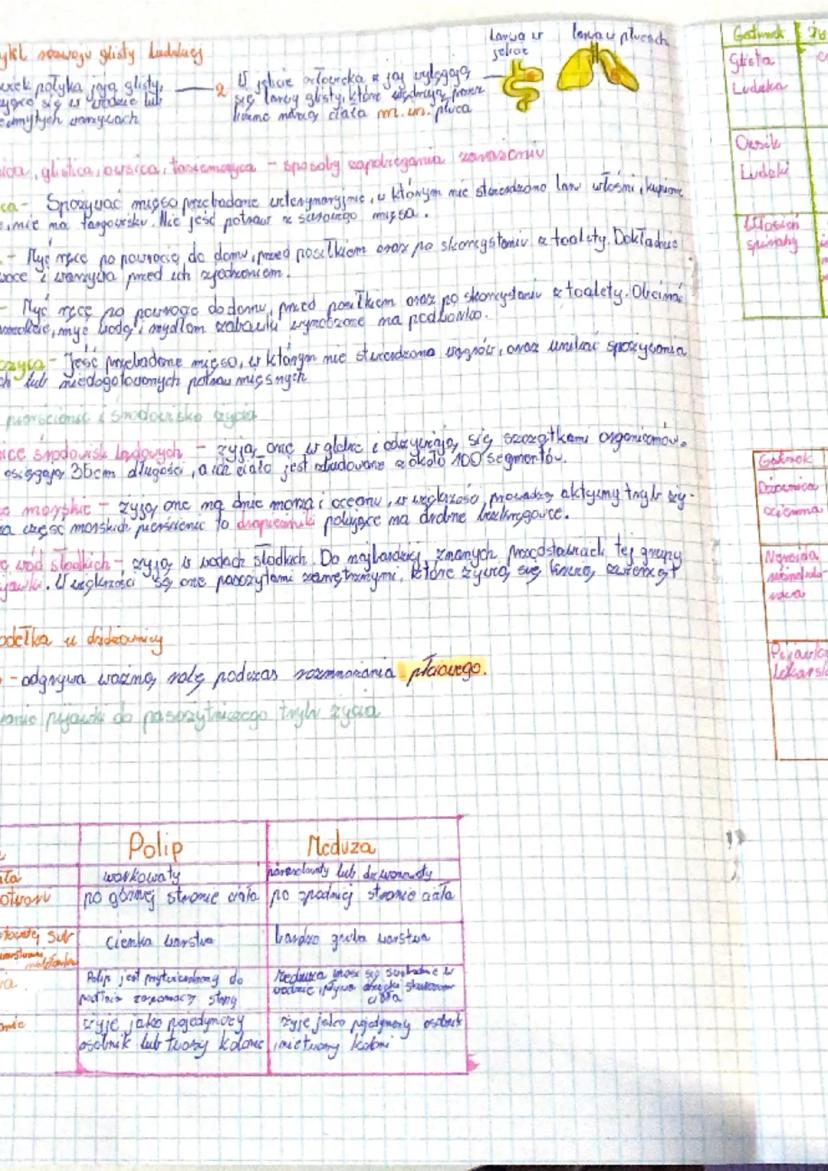 ykl rozwoju glisty ludzkiej
Larwa w
jelicie
larwa w płucach
połyka jaja glisty,
się w wodzie lub
warzywach
2
W jelicie człowieka z jaj wylęgają
się larwy glisty, które wędrują przez
różne narządy ciała m.in. płuca
glistica, owsica, tasiemczyca – sposoby zapobiegania zarażeniu
ca – Spożywać mięso przebadane weterynaryjnie, w którym nie stwierdzono larw włośni, kupione
nie na targowisku. Nie jeść potraw z surowego mięsa.
- Myć ręce po powrocie do domu, przed posiłkiem oraz po skorzystaniu z toalety. Dokładnie
i warzywa przed ich zjedzeniem.
- Myć ręce po powrocie do domu, przed posiłkiem oraz po skorzystaniu z toalety. Obcinać
myć wodą i mydłem zabawki
czyca – Jeść przebadane mięso, w którym nie stwierdzono wągrów, oraz unikać spożywania
ch lub niedogotowanych potraw mięsnych
pierścienic i środowisko życia
ice środowisk lądowych – żyją one w glebie i odżywiają się szczątkami organizmów.
osiągają 36cm długości, a ich ciało jest zbudowane z około 100 segmentów.
morskie – żyją one na dnie morza i oceanu, w większości prowadzą aktywny tryb ży-
część morskich pierścienic to drapieżniki polujące na drobne bezkręgowce.
wód słodkich – żyją w wodach słodkich. Do najbardziej znanych przedstawicieli tej grupy
. W większości są one pasożytami zewnętrznymi, które żywią się krwią zwierząt
odełka u dżdżownicy
- odgrywa ważną rolę podczas rozmnażania płciowego.
anie pijawki do pasożytniczego trybu życia
Polip
Meduza
workowaty
parasolowaty lub dzwonowaty
po górnej stronie ciała
po spodniej stronie ciała
cienka warstwa
bardzo gruba warstwa
Polip jest przytwierdzony do
podłoża za pomocą stopy
Meduza unosi się swobodnie w
wodzie, pływa dzięki skurczom
ciała
żyje jako pojedynczy
osobnik lub tworzy kolonie
żyje jako pojedynczy osobnik
i nie tworzy koloni
Gatunek
Glista
Ludzka
Owsik
Ludzki
Włosień
spiralny
Gatunek
Pijawka
Lekarska